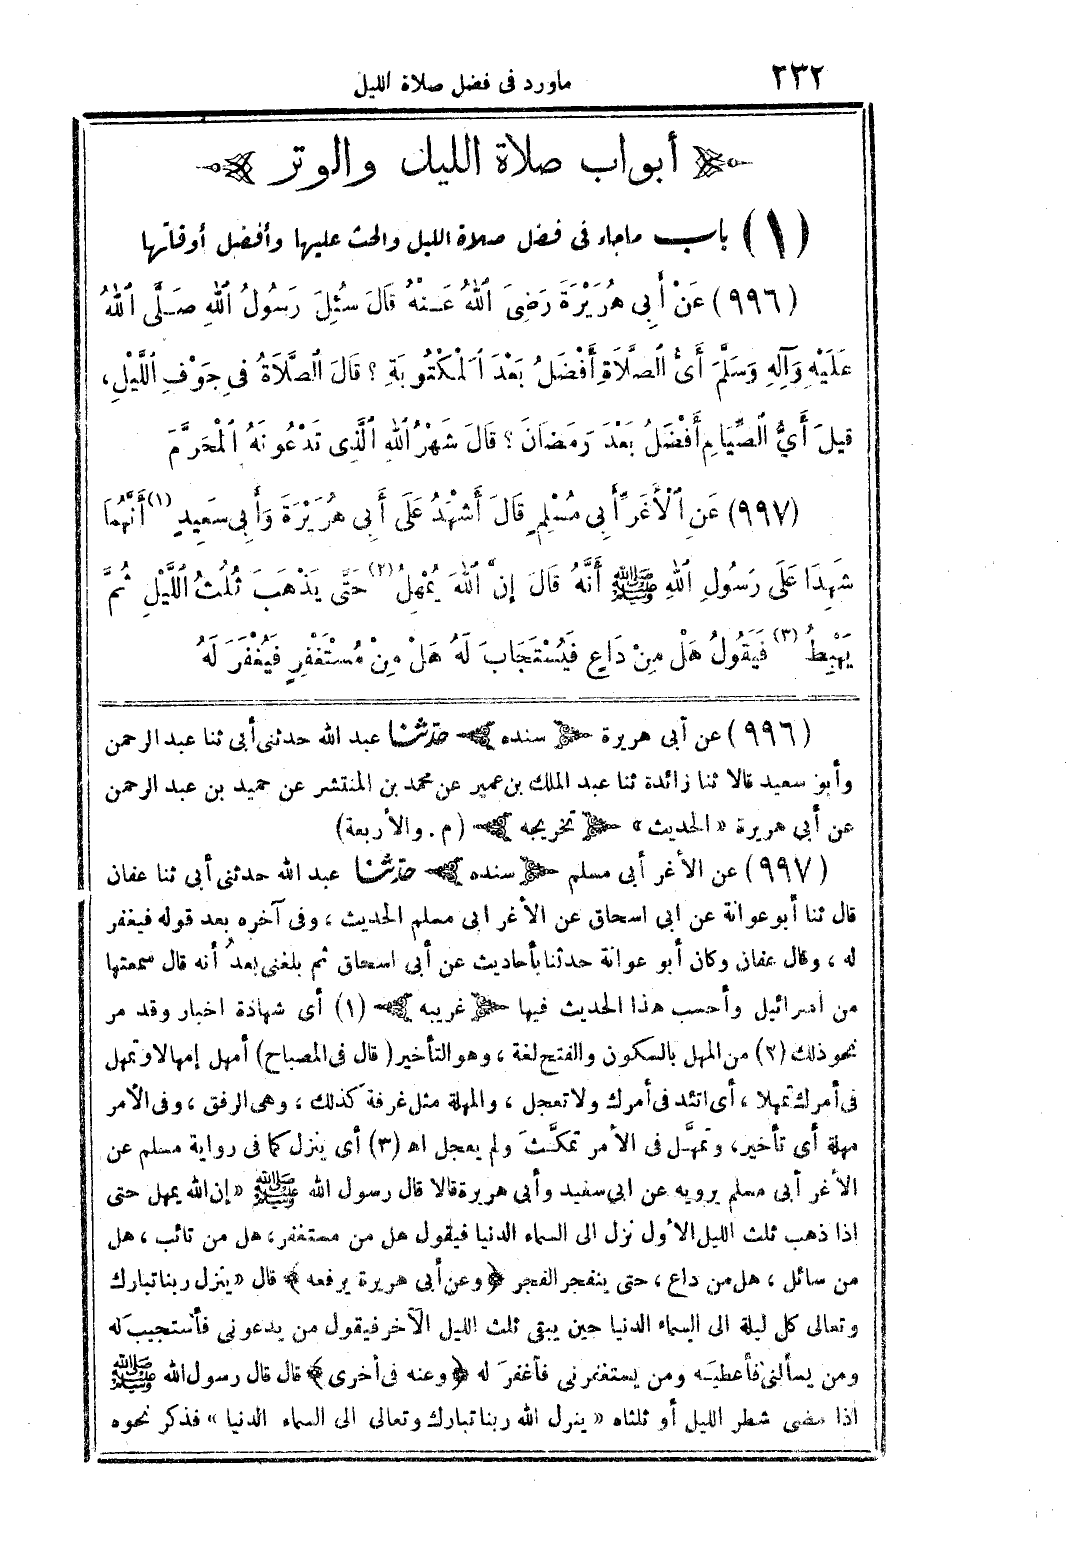 ٢٣٢
ماورد فى فضل صلاة الليل
أبواب صلاة الليل والوتر
(١) باب ماجاء فى فضل صلاة الليل والحث عليها وأفضل أوقاتها
(٩٩٦) عَنْ أَبِى هُرَيْرَةَ رَضِىَ اللهُ عَنْهُ قَالَ سُئِلَ رَسُولُ اللهِ صَلَّى اللهُ
عَلَيْهِ وَآلِهِ وَسَلَّمَ أَىُّ الصَّلَاةِ أَفْضَلُ بَعْدَ الْمَكْتُوبَةِ ؟ قَالَ الصَّلَاةُ فِى جَوْفِ اللَّيْلِ،
قِيلَ أَىُّ الصِّيَامِ أَفْضَلُ بَعْدَ رَمَضَانَ ؟ قَالَ شَهْرُ اللهِ الَّذِى تَدْعُونَهُ الْمُحَرَّمَ
(٩٩٧) عَنِ الْأَغَرِّ أَبِى مُسْلِمٍ قَالَ أَشْهَدُ عَلَى أَبِى هُرَيْرَةَ وَأَبِى سَعِيدٍ (١) أَنَّهُمَا
شَهِدَا عَلَى رَسُولِ اللهِ ﷺ أَنَّهُ قَالَ إِنَّ اللهَ يُمْهِلُ (٢) حَتَّى يَذْهَبَ ثُلُثُ اللَّيْلِ ثُمَّ
يَهْبِطُ (٣) فَيَقُولُ هَلْ مِنْ دَاعٍ فَيُسْتَجَابَ لَهُ هَلْ مِنْ مُسْتَغْفِرٍ فَيُغْفَرَ لَهُ
(٩٩٦) عن أبى هريرة ﴿ سنده ﴾ حدثنا عبد الله حدثنى أبى ثنا عبد الرحمن
وأبو سعيد قالا ثنا زائدة ثنا عبد الملك بن عمير عن محمد بن المنتشر عن حميد بن عبد الرحمن
عن أبى هريرة «الحديث» ﴿ تخريجه ﴾ (م. والأربعة)
(٩٩٧) عن الأغر أبى مسلم ﴿ سنده ﴾ حدثنا عبد الله حدثنى أبى ثنا عفان
قال ثنا أبو عوانة عن ابى اسحاق عن الأغر ابى مسلم الحديث ، وفى آخره بعد قوله فيغفر
له ، وقال عفان وكان أبو عوانة حدثنا بأحاديث عن أبى اسحاق ثم بلغنى بعدُ أنه قال سمعتها
من اسرائيل وأحسب هذا الحديث فيها ﴿ غريبه ﴾ (١) أى شهادة اخبار وقد مر
نحو ذلك (٢) من المهل بالسكون والفتح لغة ، وهو التأخير (قال فى المصباح) أمهل إمهالا وتمهل
فى أمرك تمهلا ، أى اتئد فى أمرك ولا تعجل ، والمهلة مثل غرفة كذلك ، وهى الرفق ، وفى الأمر
مهلة أى تأخير، وتمهَّل فى الأمر تمكَّث ولم يعجل اهـ (٣) أى ينزل كما فى رواية مسلم عن
الأغر أبى مسلم يرويه عن ابى سعيد وأبى هريرة قالا قال رسول الله ﷺ «إن الله يمهل حتى
اذا ذهب ثلث الليل الأول نزل الى السماء الدنيا فيقول هل من مستغفر، هل من تائب ، هل
من سائل ، هل من داع ، حتى ينفجر الفجر ﴿وعن أبى هريرة يرفعه﴾ قال «ينزل ربنا تبارك
وتعالى كل ليلة الى السماء الدنيا حين يبقى ثلث الليل الآخر فيقول من يدعونى فأستجيب له
ومن يسألنى فأعطيَه ومن يستغفرنى فأغفرَ له ﴿وعنه فى أخرى﴾ قال قال رسول الله ﷺ
اذا مضى شطر الليل أو ثلثاه « ينزل الله ربنا تبارك وتعالى الى السماء الدنيا » فذكر نحوه